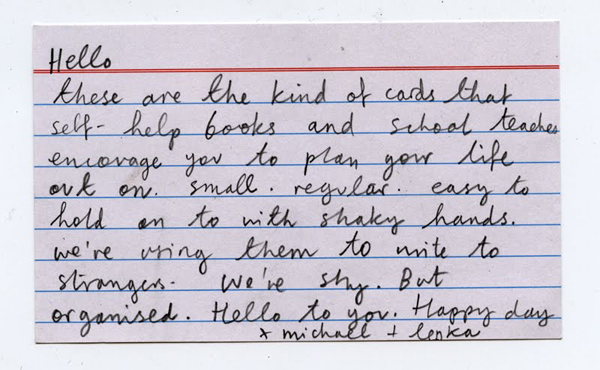 Hello
these are the kind of cards that
self- help books and school teaches
encourage you to plan your life
out on. small. regular. easy to
hold on to with shaky hands.
we're using them to write to
strangers. We're shy. But
organised. Hello to you. Happy day
x michael + lenka